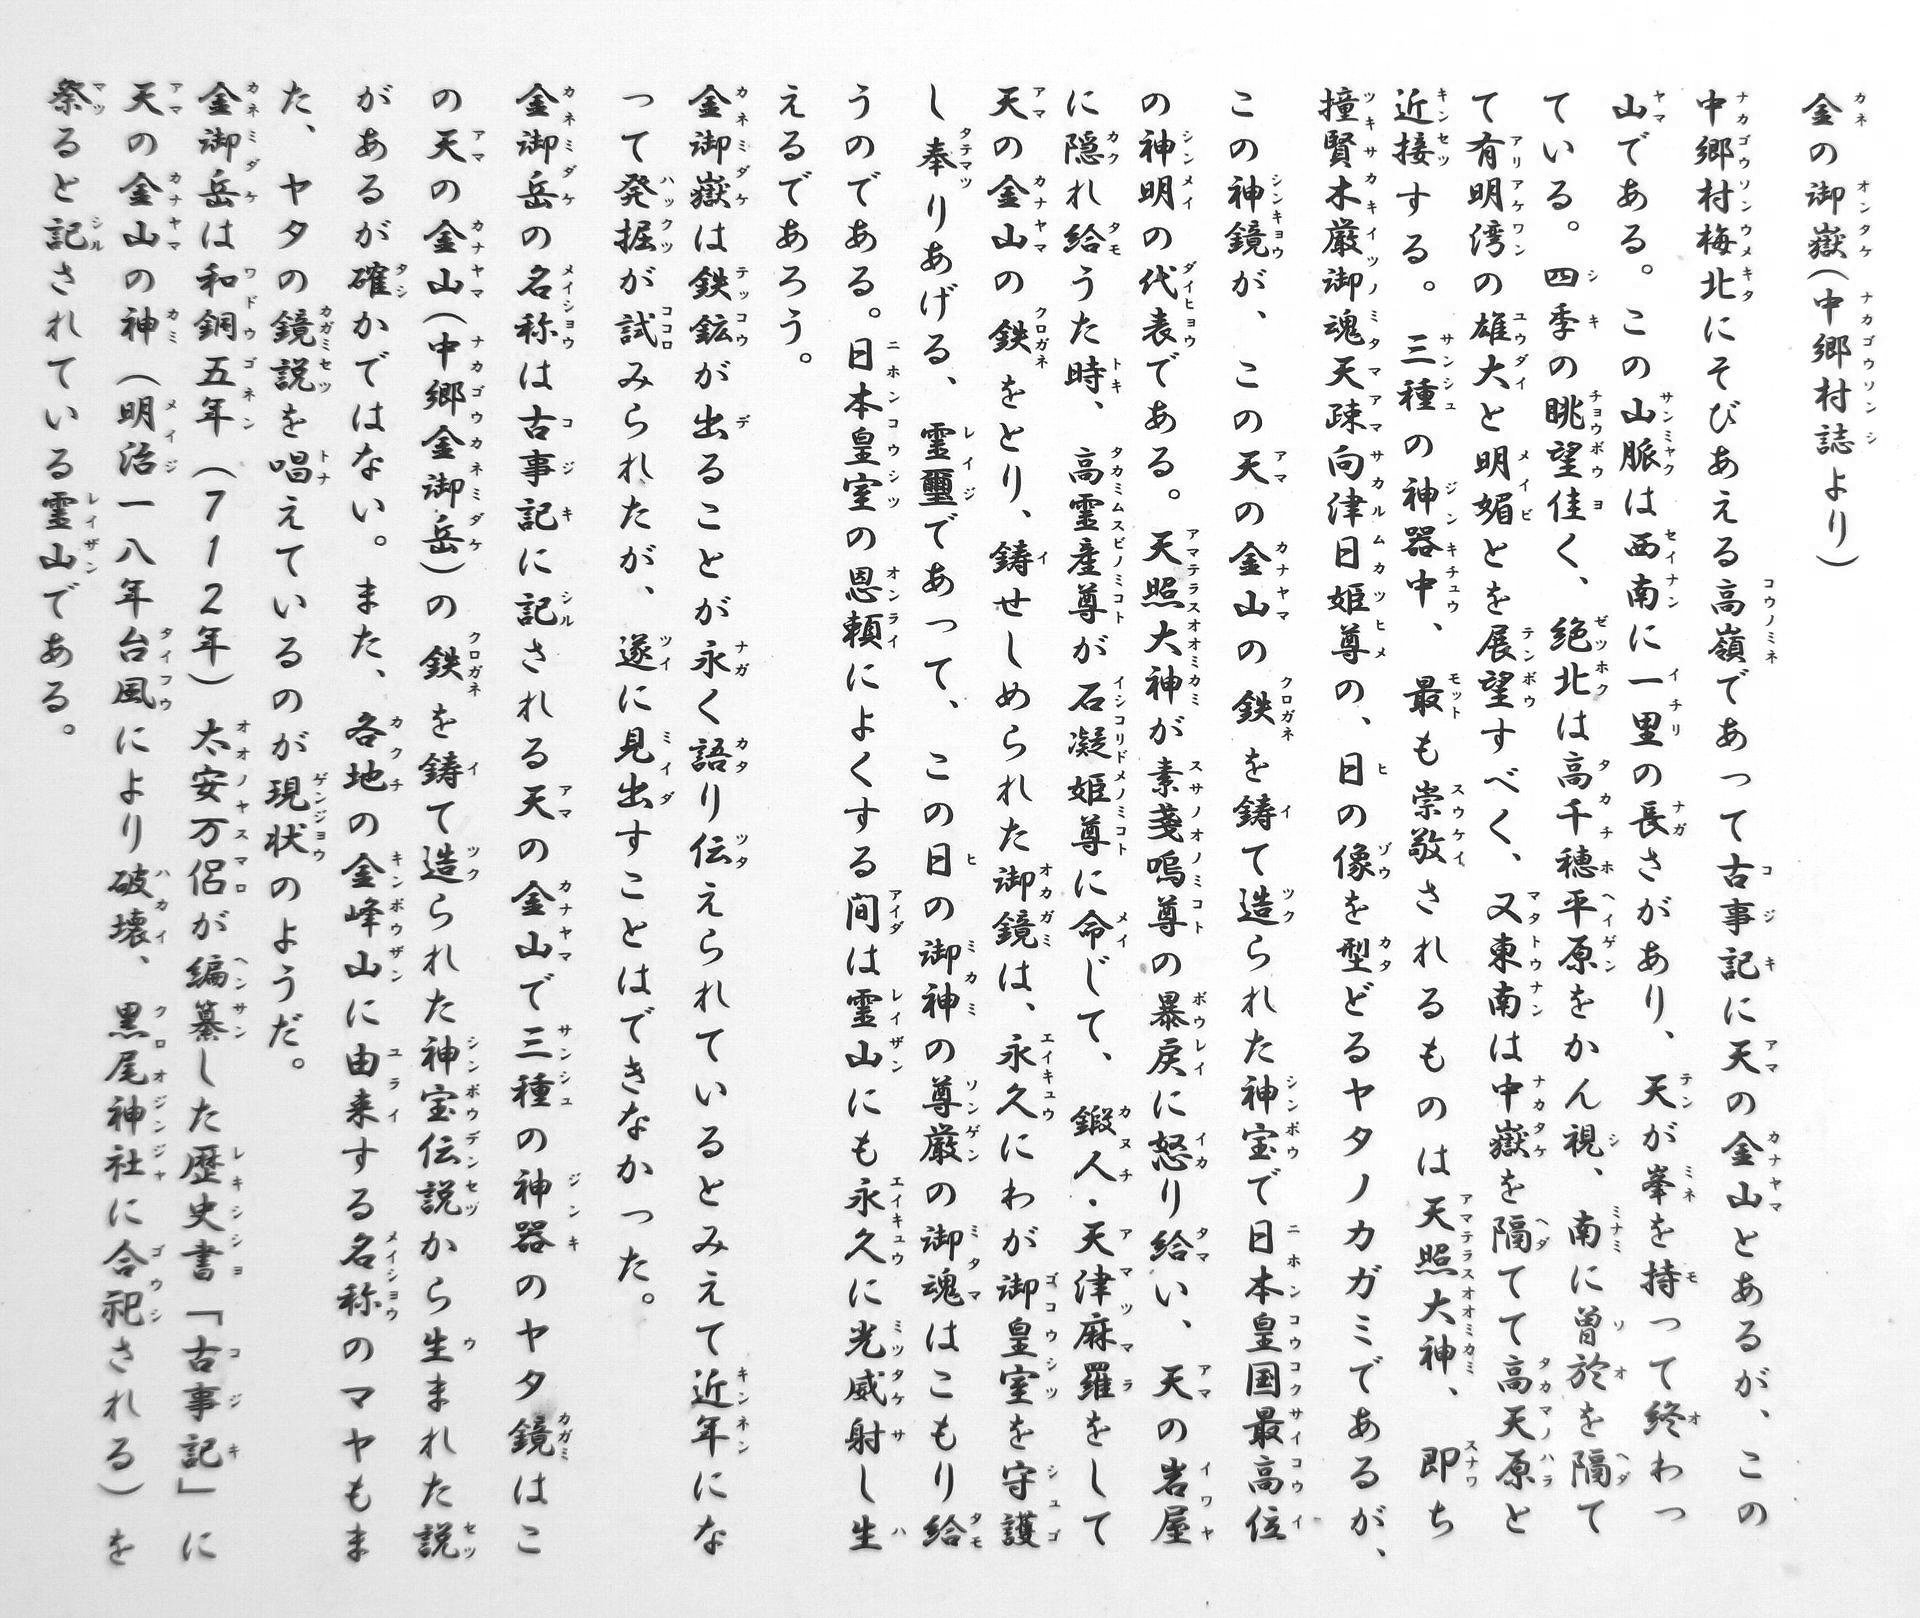 金の御嶽(中郷村誌より)
中郷村梅北にそびあえる高嶺であって古事記に天の金山とあるが、この
山である。この山脈は西南に一里の長さがあり、天が峯を持って終わっ
ている。四季の眺望佳く、絶北は高千穂平原をかん視、南に曽於を隔て
て有明湾の雄大と明媚とを展望すべく、又東南は中嶽を隔てて高天原と
近接する。三種の神器中、最も崇敬されるものは天照大神、即ち
撞賢木厳御魂天疎向津日姫尊の、日の像を型どるヤタノカガミであるが、
この神鏡が、この天の金山の鉄を鋳て造られた神宝で日本皇国最高位
の神明の代表である。天照大神が素戔嗚尊の暴戻に怒り給い、天の岩屋
に隠れ給うた時、高霊産尊が石凝姫尊に命じて、鍛人・天津麻羅をして
天の金山の鉄をとり、鋳せしめられた御鏡は、永久にわが御皇室を守護
し奉りあげる、霊璽であって、この日の御神の尊厳の御魂はこもり給
うのである。日本皇室の恩頼によくする間は霊山にも永久に光威射し生
えるであろう。
金御嶽は鉄鉱が出ることが永く語り伝えられているとみえて近年にな
って発掘が試みられたが、遂に見出すことはできなかった。
金御岳の名称は古事記に記される天の金山で三種の神器のヤタ鏡はこ
の天の金山(中郷金御岳)の鉄を鋳て造られた神宝伝説から生まれた説
があるが確かではない。また、各地の金峰山に由来する名称のマヤもま
た、ヤタの鏡説を唱えているのが現状のようだ。
金御岳は和銅五年(712年)太安万侶が編纂した歴史書「古事記」に
天の金山の神(明治一八年台風により破壊、黒尾神社に合祀される)を
祭ると記されている霊山である。